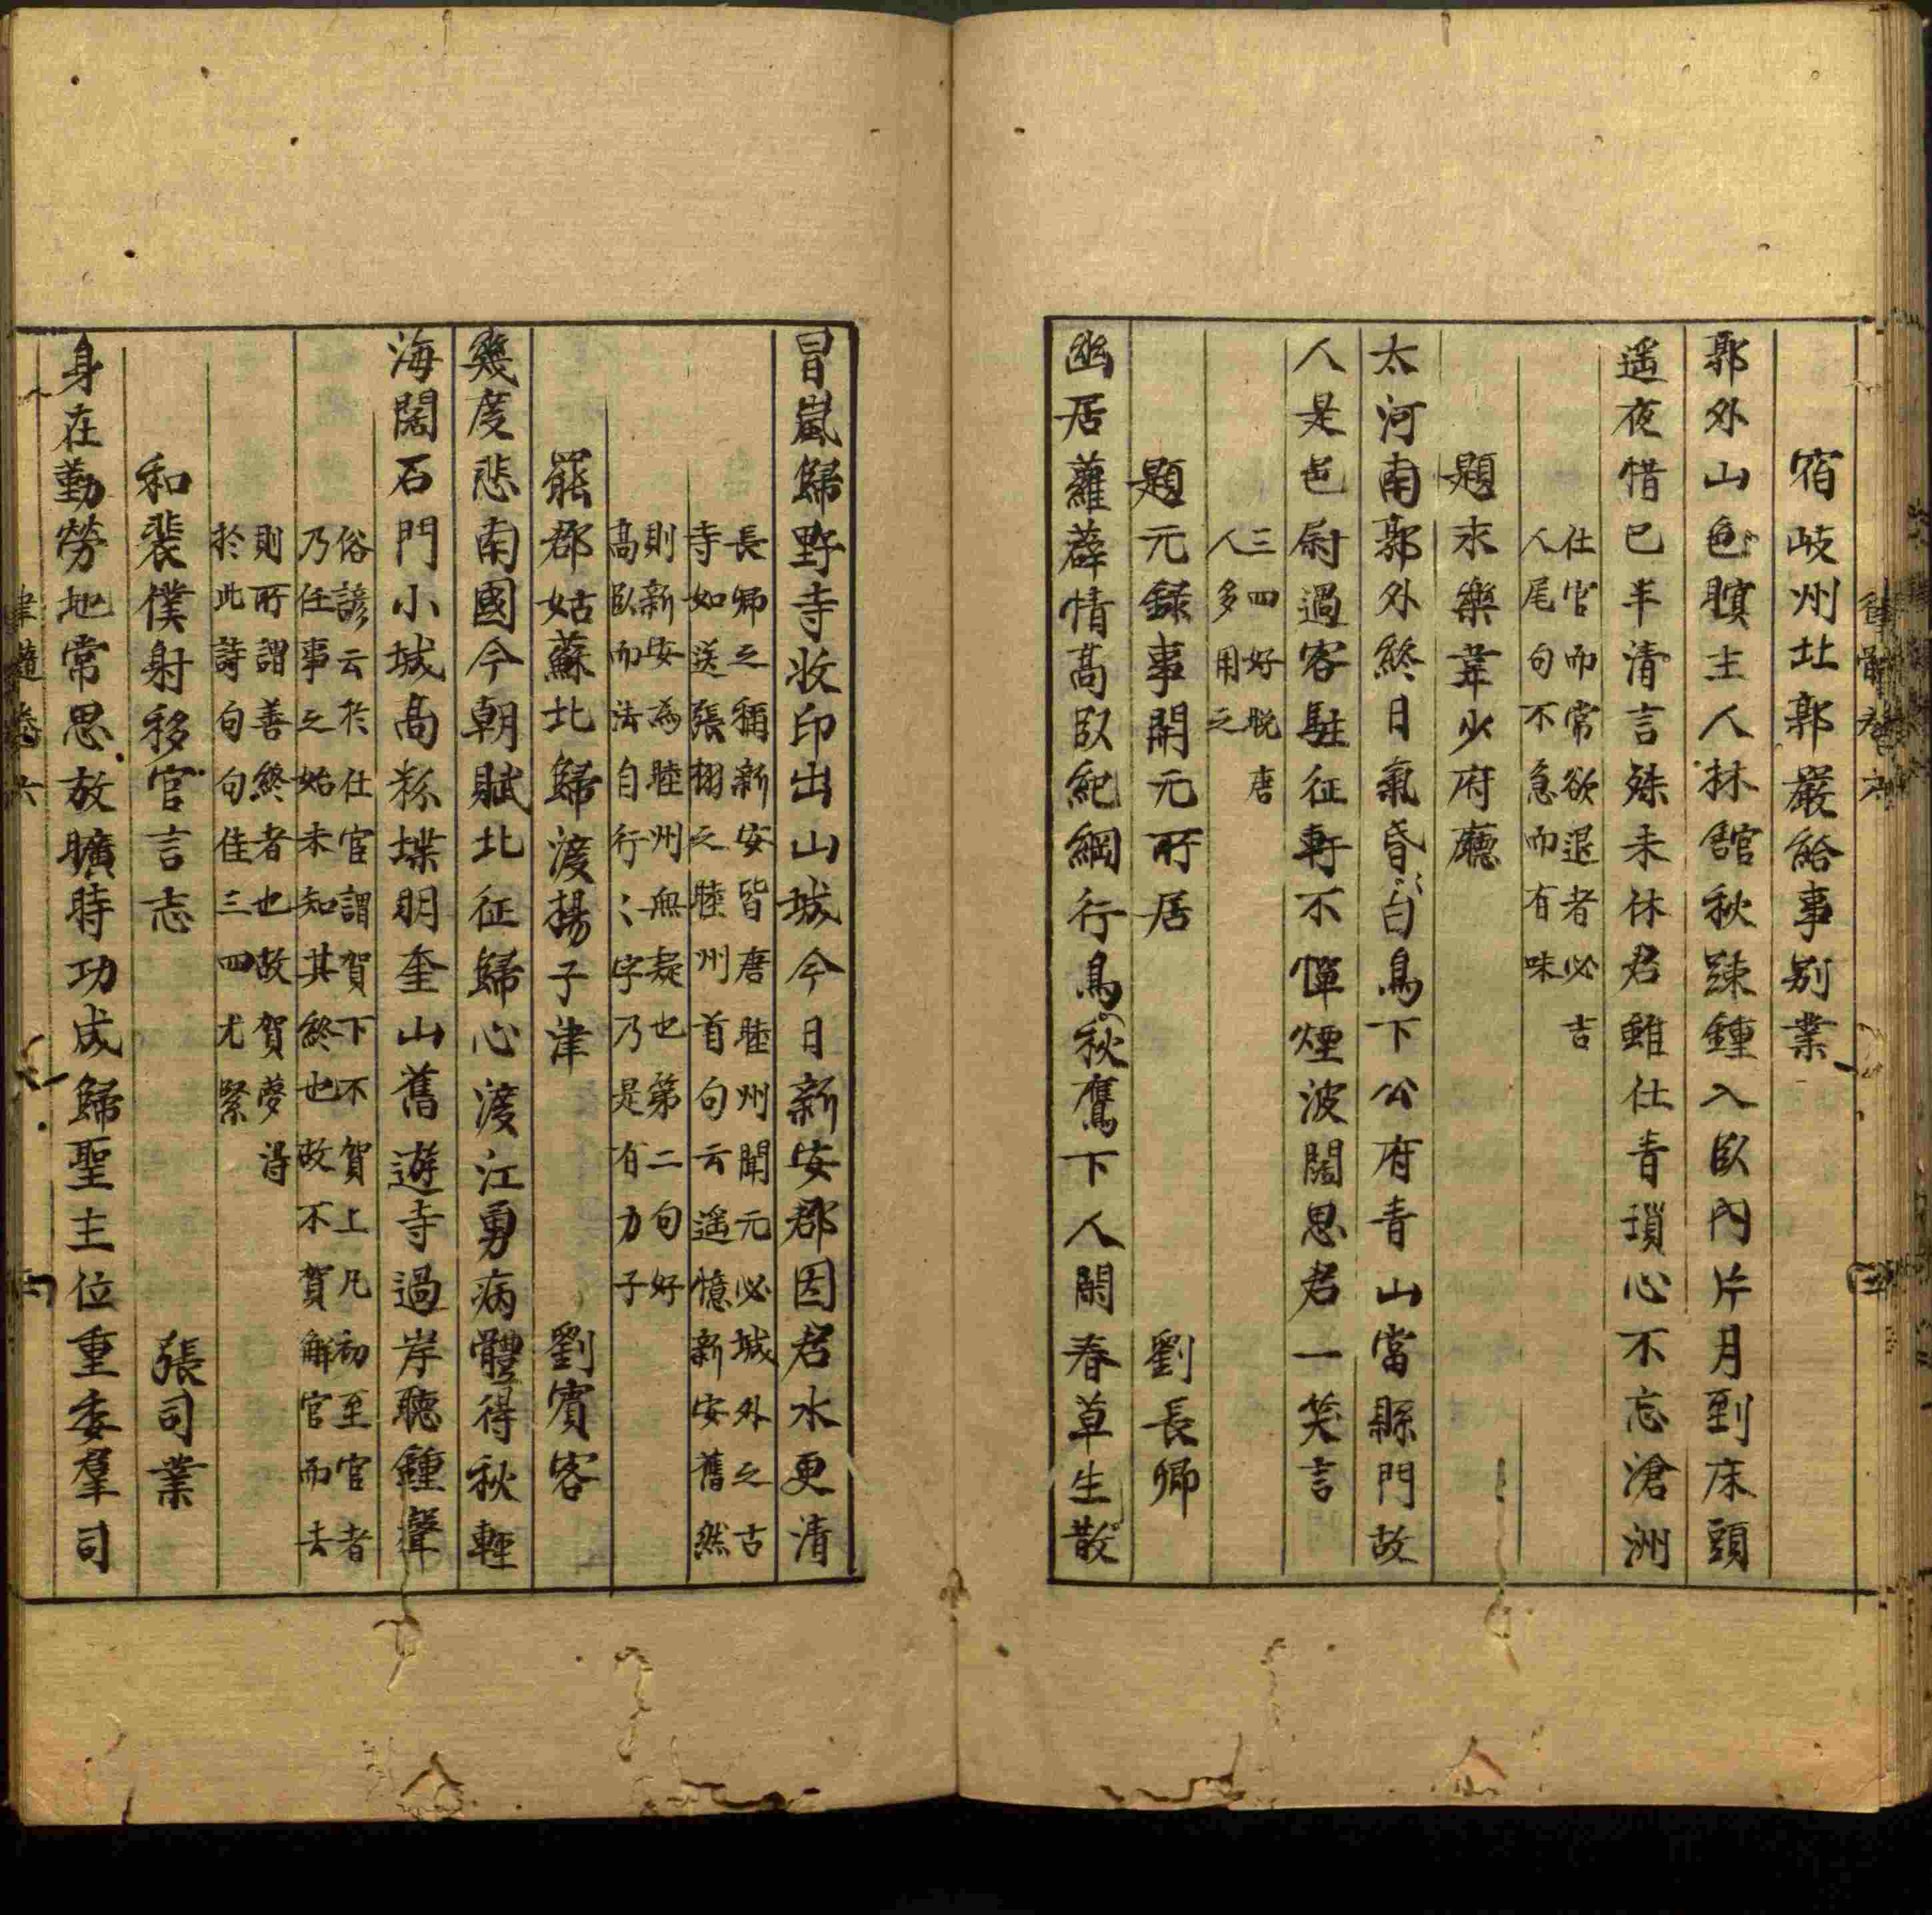 宿岐州北郭嚴給事別業
郭外山色暝主人林舘秋踈鍾入臥內片月到床頭
遥夜惜已半清言殊未休君雖仕青瑣心不忘滄洲
仕官而常欲退者必吉
人尾句不急而有味
題永樂韋少府廳
太河南郭外終日氣昏昏白鳥下公府青山當縣門故
人是邑尉過客駐征軒不憚煙波闊思君一笑言
三四好脫唐
人多用之
題元錄事開元所居　劉長卿
幽居蘿薜情高臥紀綱行鳥散秋鷹下人閑春草生
冒嵐歸野寺收印出山城今日新安郡因君水更清
長卿之稱新安皆唐睦州開元必城外之古
寺如送張栩之睦州首句云遥憶新安舊然
則新安為睦州無疑也第二句好
高臥而法自行行字乃是有力子
罷郡姑蘇北歸渡揚子津　劉賓客
幾度悲南國今朝賦北征歸心渡江勇病體得秋輕
海闊石門小城高粉堞明奎山舊遊寺過岸聽鍾聲
俗諺云於仕宦謂賀下不賀上凡初至官者
乃任事之始未知其終也故不賀解官而去
則所謂善終者也故賀夢得
於此詩句句佳三四尤緊
和裴僕射移官言志　張司業
身在勤勞地常思放曠時功成歸聖主位重委羣司
律髓卷六